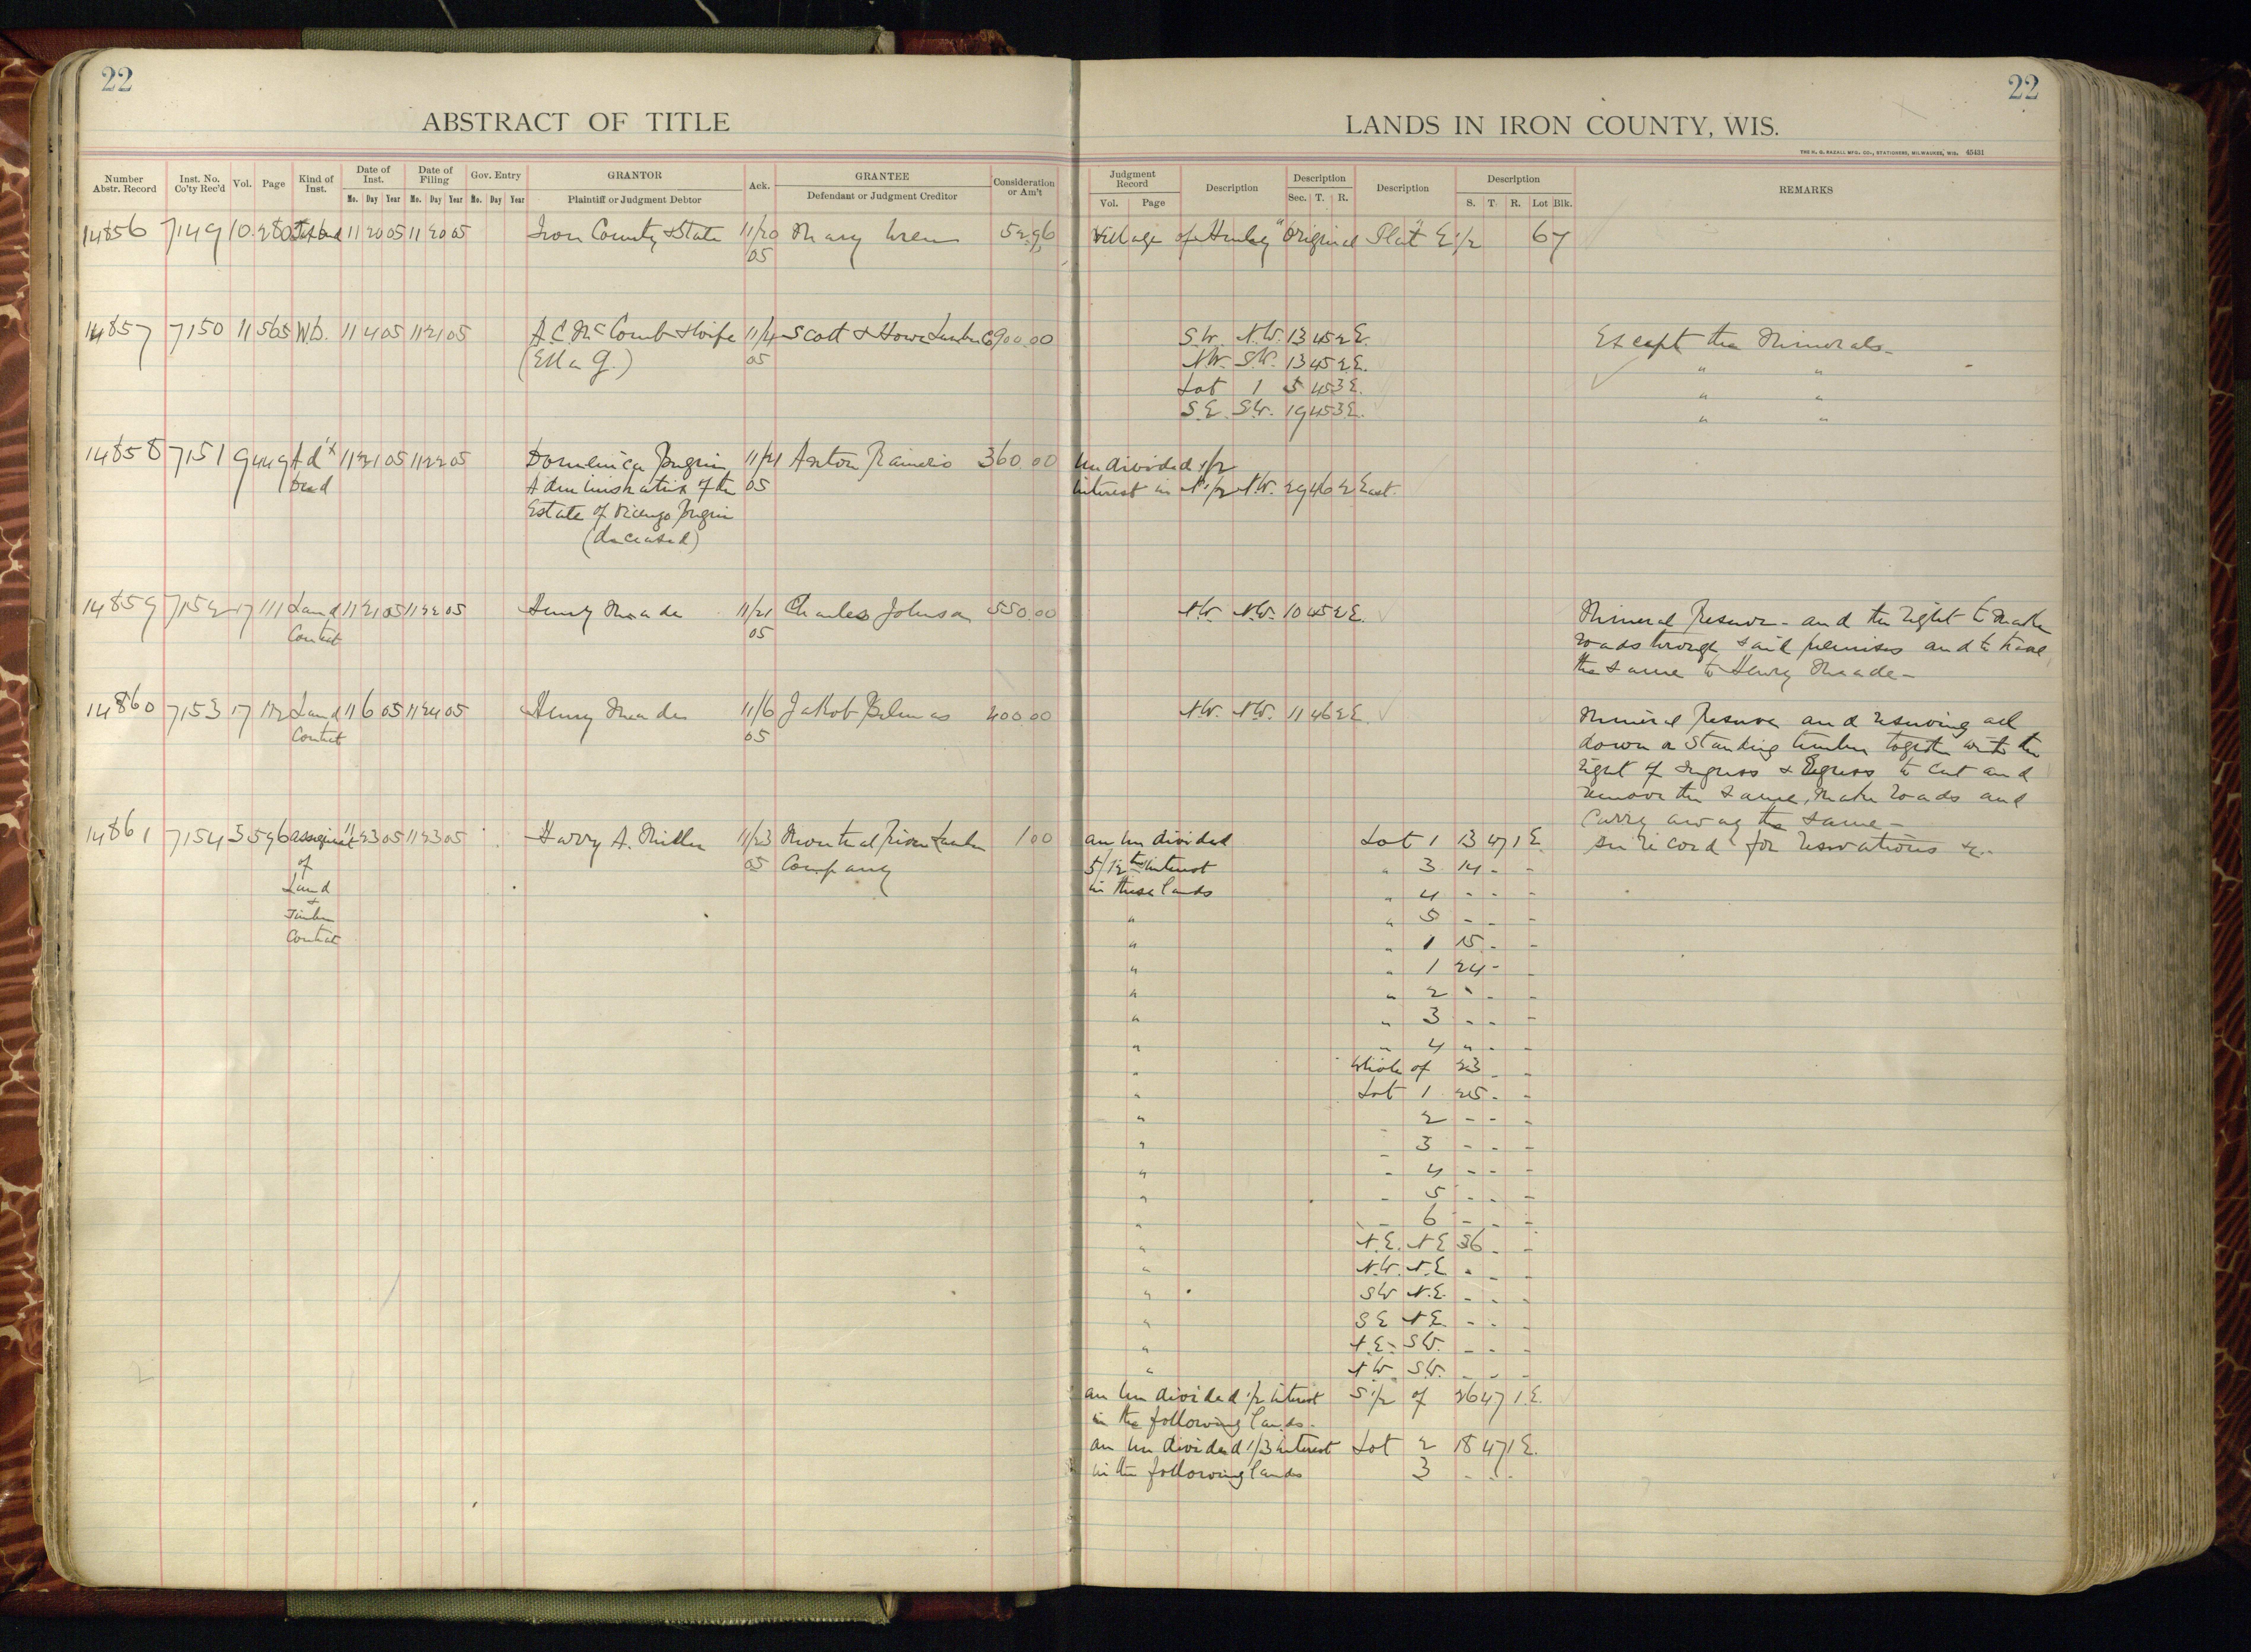 22
ABSTRACT OF TITLE
Number Abstr. Record
Inst. No. Co'ty Rec'd
Vol.
Page
Kind of Inst.
Date of Inst.
Mo. Day Year
Date of Filing
Mo. Day Year
Gov. Entry
Mo. Day Year
GRANTOR
Plaintiff or Judgment Debtor
Ack.
GRANTEE
Defendant or Judgment Creditor
Consideration or Am't
14856 7149 10 280 11 20 05 11 20 05 Iron County & State 11/20 Mary 52.96
05
14857 7150 11 565 WD. 11 4 05 11 21 05 A.C. McComb & Wife 11/4 Scott & Howe Lumber 6900.00
(Ella G.) 05
14858 7151 9 449 Ad'x 11 21 05 11 22 05 Domenica 11/21 Anton Raineri 360.00
Deed Administratrix of the 05
Estate of
(deceased)
14859 7152 17 111 Land 11 21 05 11 22 05 Henry Meade 11/21 Charles Johnson 550.00
Contract 05
14860 7153 17 112 Land 11 6 05 11 24 05 Henry Meade 11/6 Jakob 400.00
Contract 05
14861 7154 3 596 assignment 11 23 05 11 23 05 Harry A. Miller 11/23 Montreal River Lumber 1.00
of 05 Company
Land
&
Timber
Contract
22
LANDS IN IRON COUNTY, WIS.
THE H. G. RAZALL MFG. CO., STATIONERS, MILWAUKEE, WIS. 45431
Judgment Record
Vol. Page
Description
Description
Sec. T. R.
Description
Description
S. T. R. Lot Blk.
REMARKS
Village of Hurley "Original Plat" E 1/2 67
S.W. N.W. 13 45 2 E. Except the Minerals-
N.W. S.W. 13 45 2 E. " "
Lot 1 5 45 3 E. " "
S.E. S.W. 19 45 3 E. " "
Undivided 1/2
interest in N 1/2 N.W. 29 46 2 East.
N.W. N.W. 10 45 2 E. Mineral Reserve - and the right to make
roads through said premises and to
the same to Henry Meade -
N.W. N.W. 11 46 2 E. Mineral Reserve and reserving all
down or standing timber together with the
right of Ingress & Egress to cut and
remove the same, make roads and
carry away the same -
an undivided Lot 1 13 47 1 E. See record for reservations &c-
5/12ths interest " 3 14 - -
in these lands " 4 - - -
" " 5 - - -
" " 1 15 - -
" " 1 24 - -
" " 2 " - -
" " 3 - - -
" " 4 " - -
" Whole of 23 - -
" Lot 1 25 - -
" 2 - - -
" - 3 - - -
" - 4 - - -
" - 5 - - -
" - 6 - - -
" N.E. N.E 36 - -
" N.W. N.E " - -
" SW N.E. - - -
" S E N E. - - -
" N.E. S.W. - - -
" N.W. S.W. - - -
an undivided 1/2 interest S 1/2 of 26 47 1 E.
in the following lands.
an undivided 1/3 interest Lot 2 18 47 1 E.
in the following lands 3 - - -